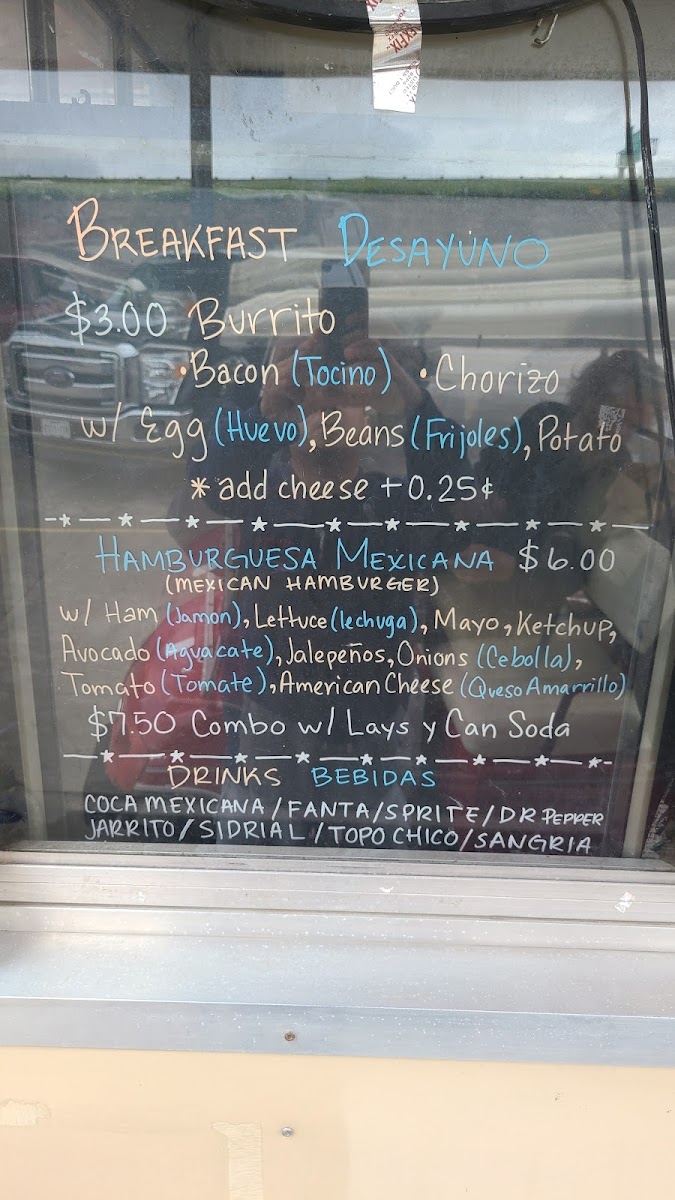 BREAKFAST DESAYUNO
$3.00 Burrito
•Bacon (Tocino) •Chorizo
w/ Egg (Huevo), Beans (Frijoles), Potato
* add cheese +0.25¢
HAMBURGUESA MEXICANA $6.00
(MEXICAN HAMBURGER)
w/ Ham (Jamon), Lettuce (lechuga), Mayo, Ketchup,
Avocado (Aguacate), Jalepeños, Onions (Cebolla),
Tomato (Tomate), American Cheese (Queso Amarrillo)
$7.50 Combo w/ Lays y Can Soda
DRINKS BEBIDAS
COCA MEXICANA / FANTA / SPRITE / DR PEPPER
JARRITO / SIDRIAL / TOPO CHICO / SANGRIA